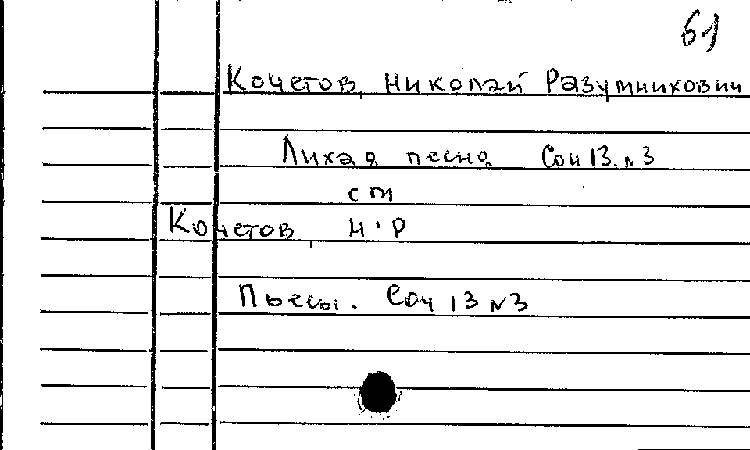 61
Кочетов, Николай Разумникович
Лихая песня Соч 13. №3
см
Кочетов, Н.Р
Пьесы. Соч 13 №3